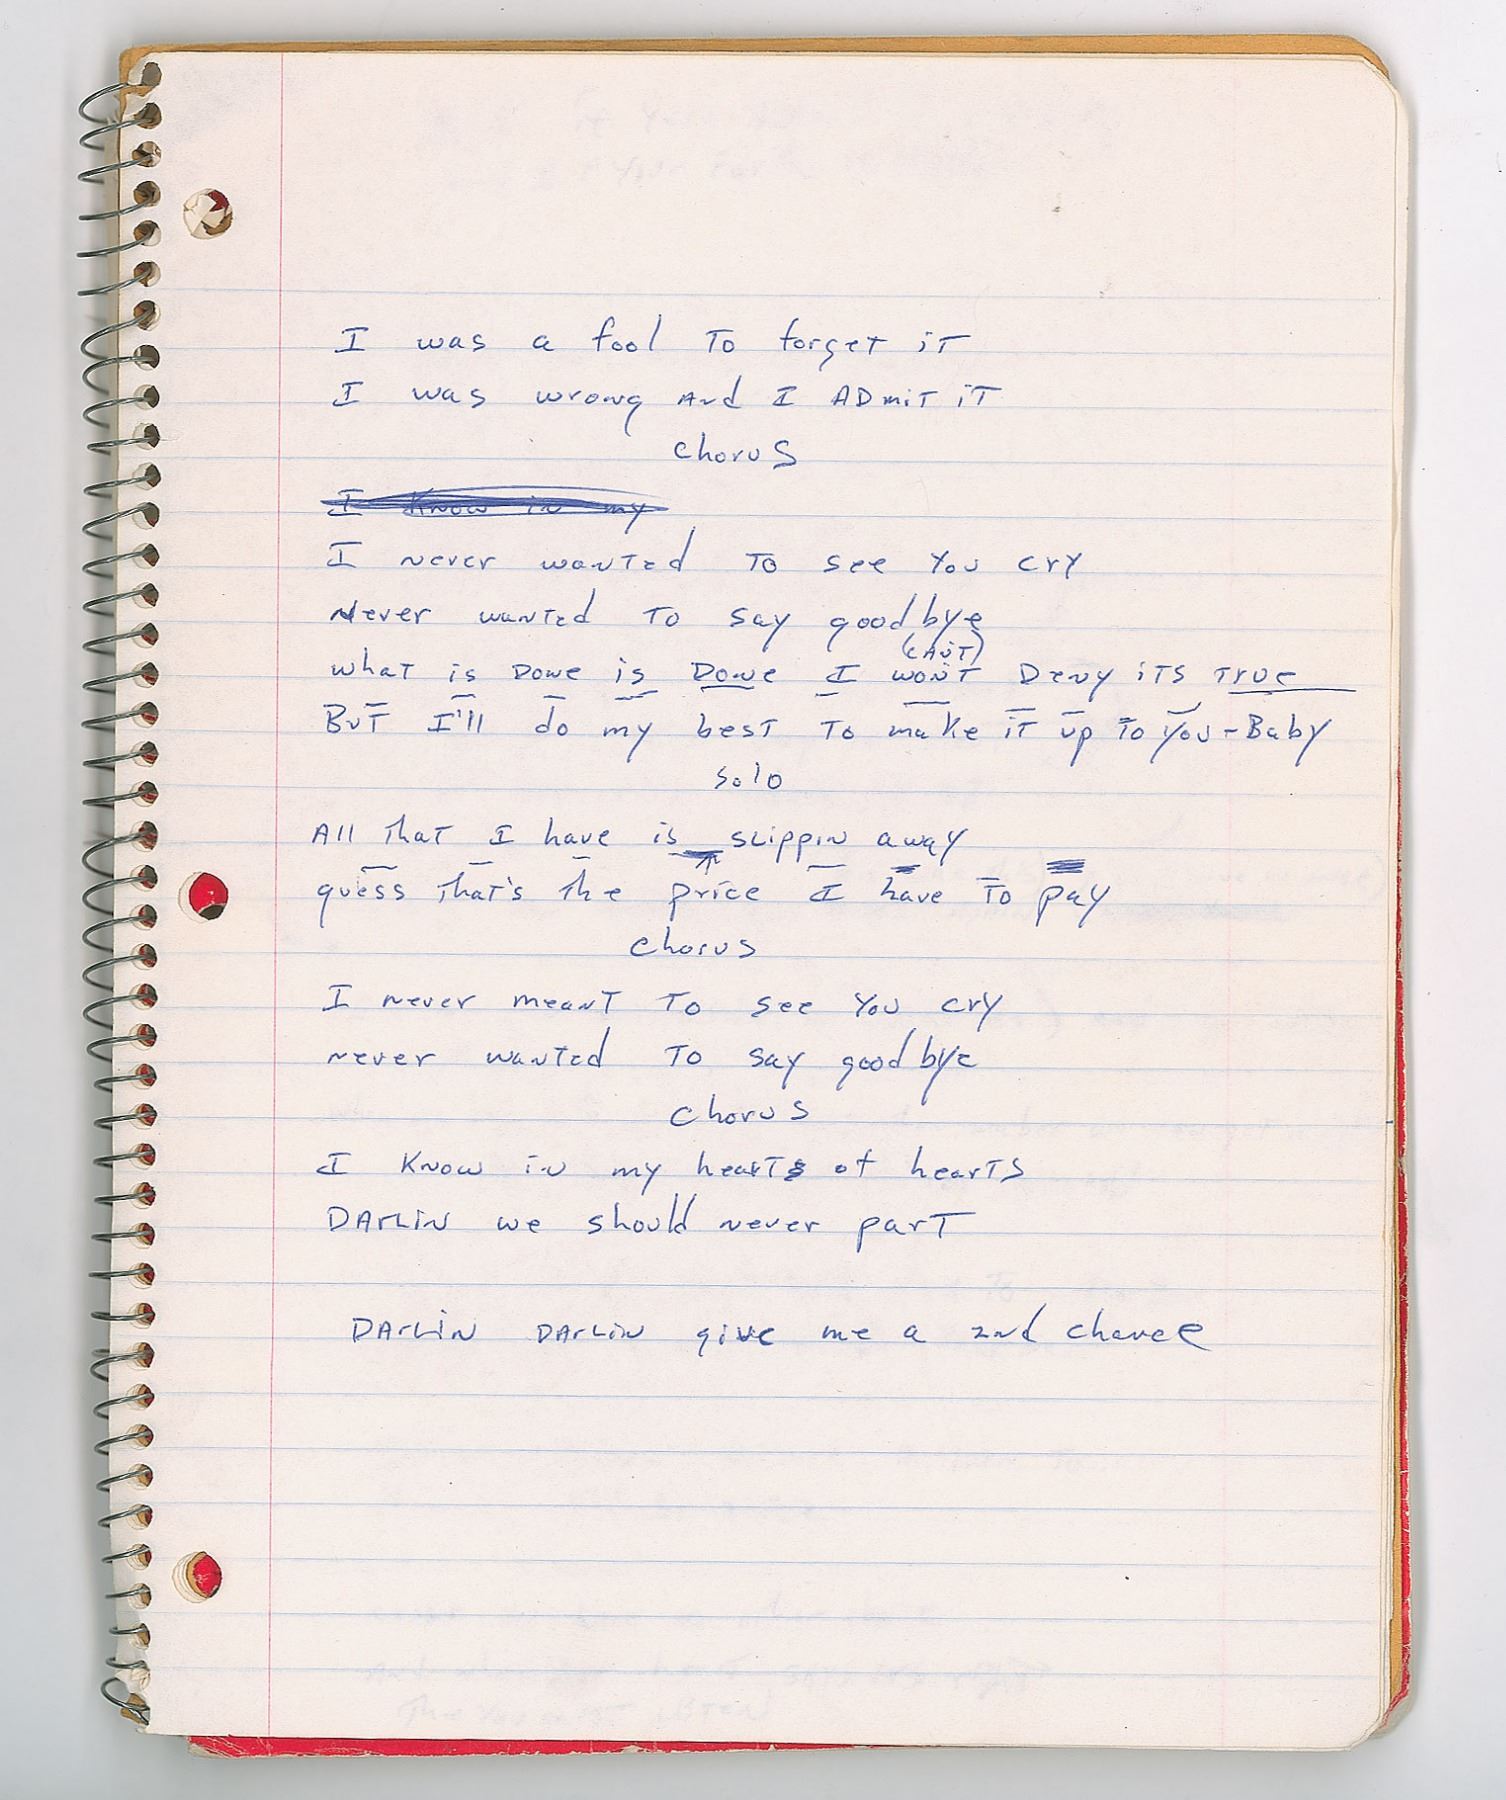 I was a fool To forget iT
I was wrong And I ADmiT iT
Chorus
I Know in my
I never wanTed To see You cry
Never wanTed To say goodbye
(CAN'T)
whaT is Done is Done I won'T Deny iTS True
BuT I'll do my besT To make iT up To you - Baby
Solo
All ThaT I have is slippin away
guess ThaT's The price I have To pay
Chorus
I never meanT To see You cry
never wanTed To say goodbye
Chorus
I Know in my hearTs of hearTs
DArLiN we should never parT
DArLiN DArLiN give me a 2nd chance